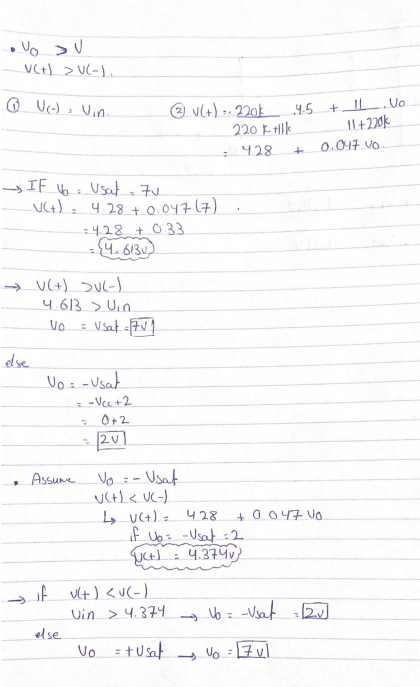 • Vo > V
V(+) > V(-).
① V(-) = Vin
② V(+) = 220k / 220k+11k . 4.5 + 11 / 11+220k . Vo
= 4.28 + 0.047 Vo
→ IF Vo = Vsat = 7v
V(+) = 4.28 + 0.047 (7) .
= 4.28 + 0.33
= 4.613v
→ V(+) > V(-)
4.613 > Vin
Vo = Vsat = 7V
else
Vo = -Vsat
= -Vcc+2
= 0+2
= 2V
• Assume Vo = -Vsat
V(+) < V(-)
↳ V(+) = 4.28 + 0.047 Vo
if Vo = -Vsat = 2
V(+) = 4.374v
→ if V(+) < V(-)
Vin > 4.374 → Vo = -Vsat = 2v
else
Vo = +Vsat → Vo = 7v